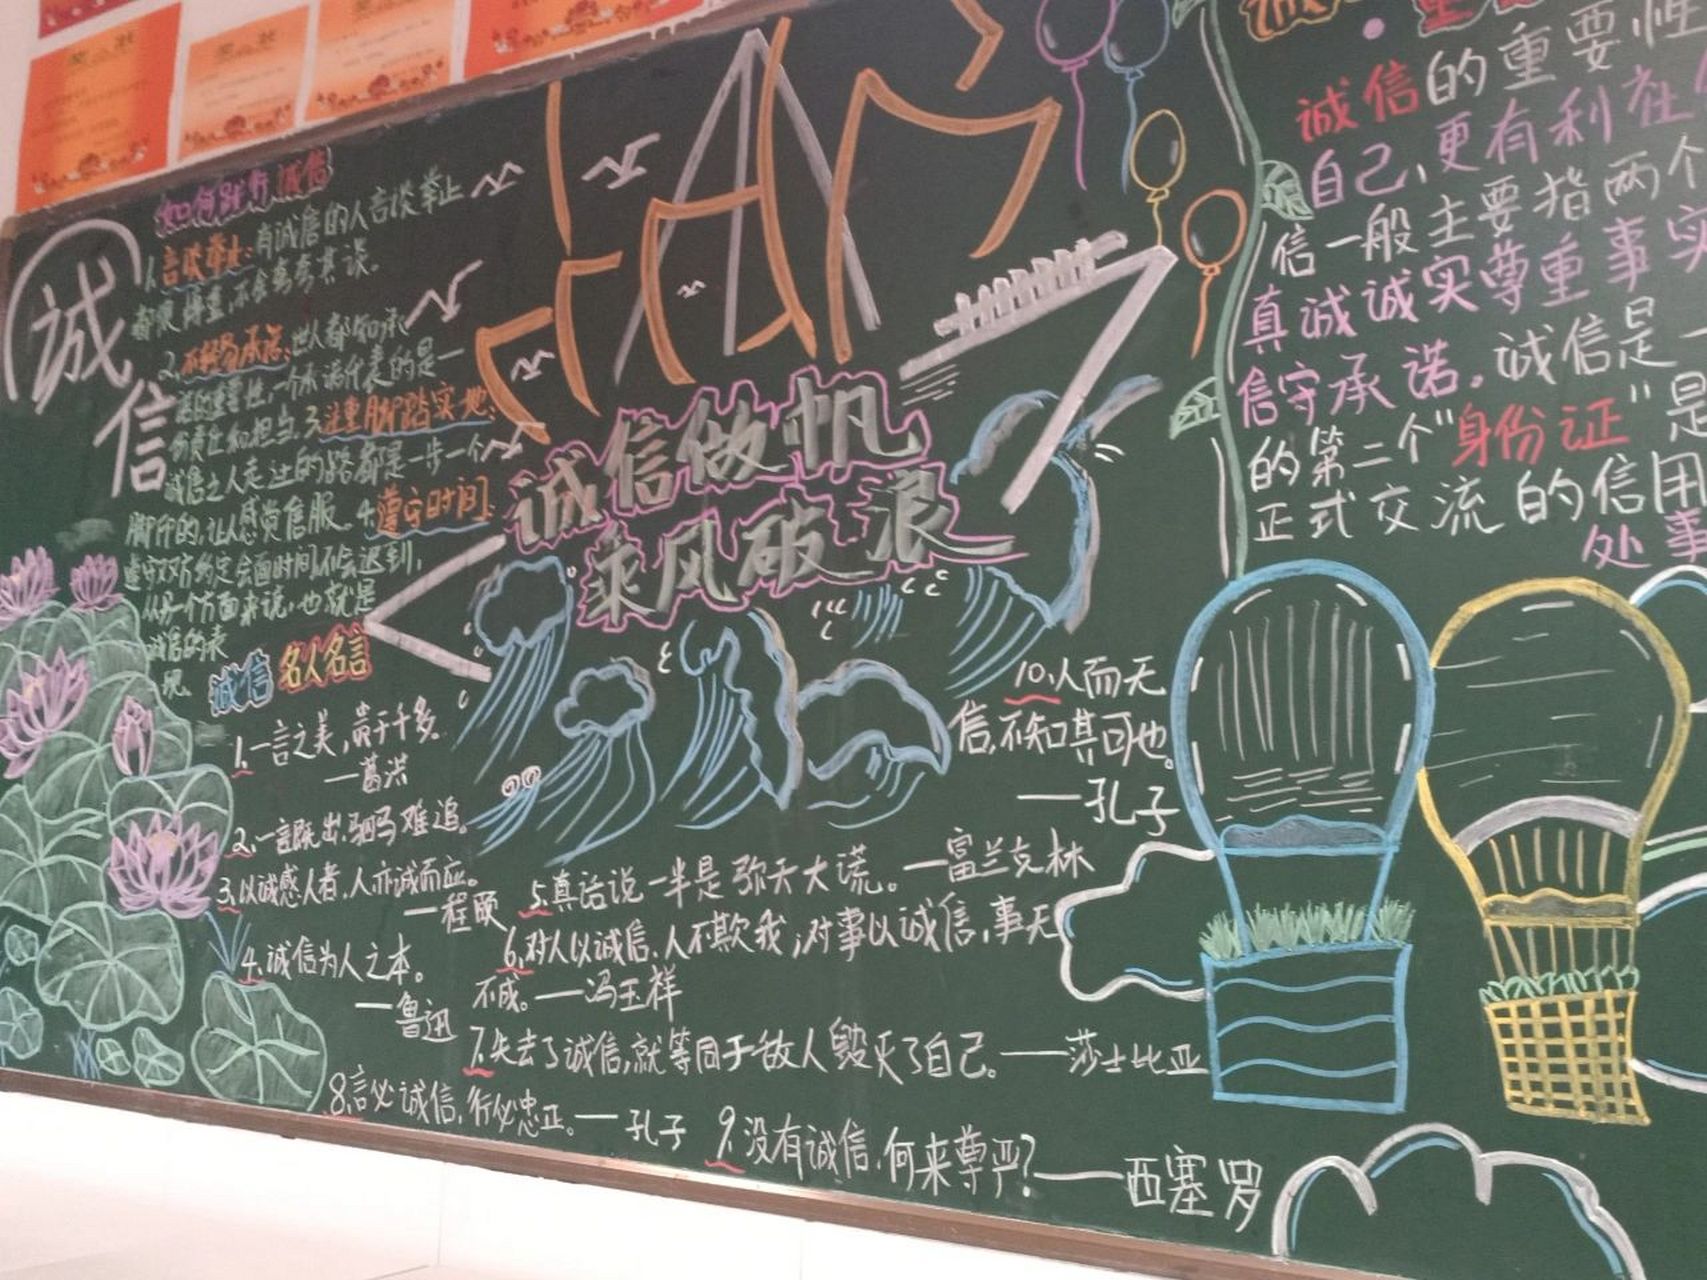 诚信
如何践行诚信
1.言谈举止:有诚信的人言谈举止
都很稳重,不会夸夸其谈。
2.不轻易承诺:世人都知承
诺的重要性,一个承诺代表的是一
份责任和担当。3.注重脚踏实地:
诚信之人走过的路都是一步一个
脚印的,让人感觉信服。4.遵守时间:
遵守双方约定会面时间,不会迟到,
从另一个方面来说,也就是
诚信的表
现。
诚信名人名言
1.一言之美,贵于千金。
—葛洪
2.一言既出,驷马难追。
3.以诚感人者,人亦诚而应。
—程颐
4.诚信为人之本。
—鲁迅
诚信做帆
乘风破浪
5.真话说一半是弥天大谎。—富兰克林
6.对人以诚信,人不欺我;对事以诚信,事无
不成。—冯玉祥
7.失去了诚信,就等同于敌人毁灭了自己。——莎士比亚
8.言必诚信,行必忠正。—孔子
9.没有诚信,何来尊严?——西塞罗
10.人而无
信,不知其可也。
—孔子
诚信的重要性
自己,更有利在
信一般主要指两个
真诚诚实尊重事实
信守承诺。诚信是一
的第二个"身份证"是
正式交流的信用
处事